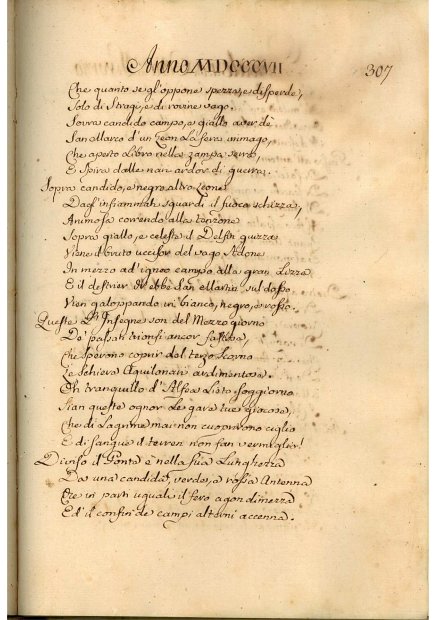 Anno MDCCCVII
307
Che quanto se gl'oppone spezza, e disperde,
Solo di Stragi, e di rovine vago.
Sovra candido campo, e giallo, e verde
San Marco d'un Leon La fera imago,
Che aperto Libro nella zampa serra,
E Spira dalle nari ardor di guerra.
Sopra candido, e negro altro Leone
Dagl'infiammati sguardi il fuoco schizza,
Animosa correndo alla tenzone
Sopra giallo, e celeste il Delfin guizza;
Viene il bruto uccisor del vago Adone
In mezzo ad igneo campo alla gran Lizza
E il destrier ch'ebbe San Martin sul dosso
Vien galoppando in bianco, negro, e rosso.
Queste Insegne son del Mezzogiorno
De' passati trionfi ancor fastosa,
Che sperono coprir del terzo Scorno
Le Schiere Aquilonari ardimentosa.
Oh tranquillo d'Alfea Lieto Soggiorno
Sian queste ognor Le gare tue giocose,
Che di Lagrime mai non cuoprirono ciglio
E di Sangue il terren non fan vermiglio!
Diviso il Ponte è nella sua Lunghezza
Da una candida, verde, e rossa Antenna
Che in parti uguali il fero agon dimezza
Ed il confin de campi altrui accenna.